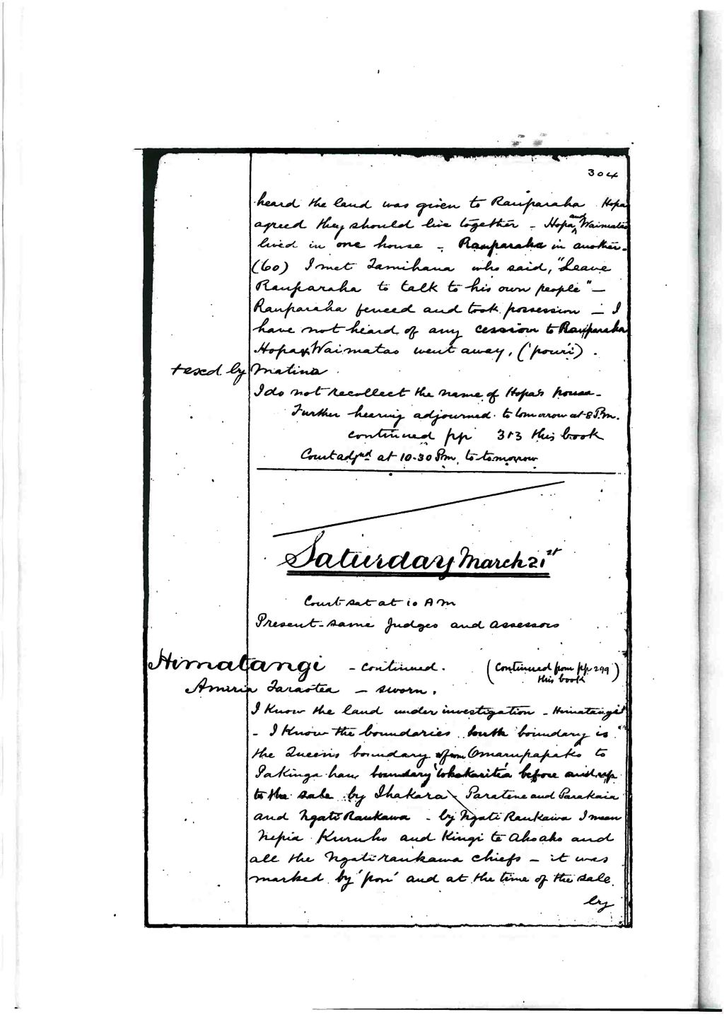 304
heard the land was given to Rauparaha Hopa
agreed they should live together - Hopa and Waimatao
lived in one house - Rauparaha in another -
(60) I met Tamihana who said, "Leave
Rauparaha to talk to his own people" -
Rauparaha fenced and took possession - I
have not heard of any cession to Rauparaha
Hopa & Waimatao went away, ('pouri').
+exd by Matina
I do not recollect the name of Hopa's house -
Further hearing adjourned to tomorrow at 8 P.m.
continued pp 313 this book
Court adjd at 10.30 P.m. to tomorrow
Saturday March 21st
Court sat at 10 A m
Present - same Judges and assessors
Himatangi - continued. (Continued from pp 299 this book)
Amiria Taraotea - sworn.
I know the land under investigation - Himatangi
- I know the boundaries south boundary is
the Queen's boundary from Omarupapako to
Pakingahau boundary 'whakaritia' before
to the sale by Ihakara - Paratene and Parakaia
and Ngati Raukawa - by Ngati Raukawa I mean
Nepia and Kingi te Ahoaho and
all the Ngatiraukawa chiefs - it was
marked by 'pou' and at the time of the sale
by